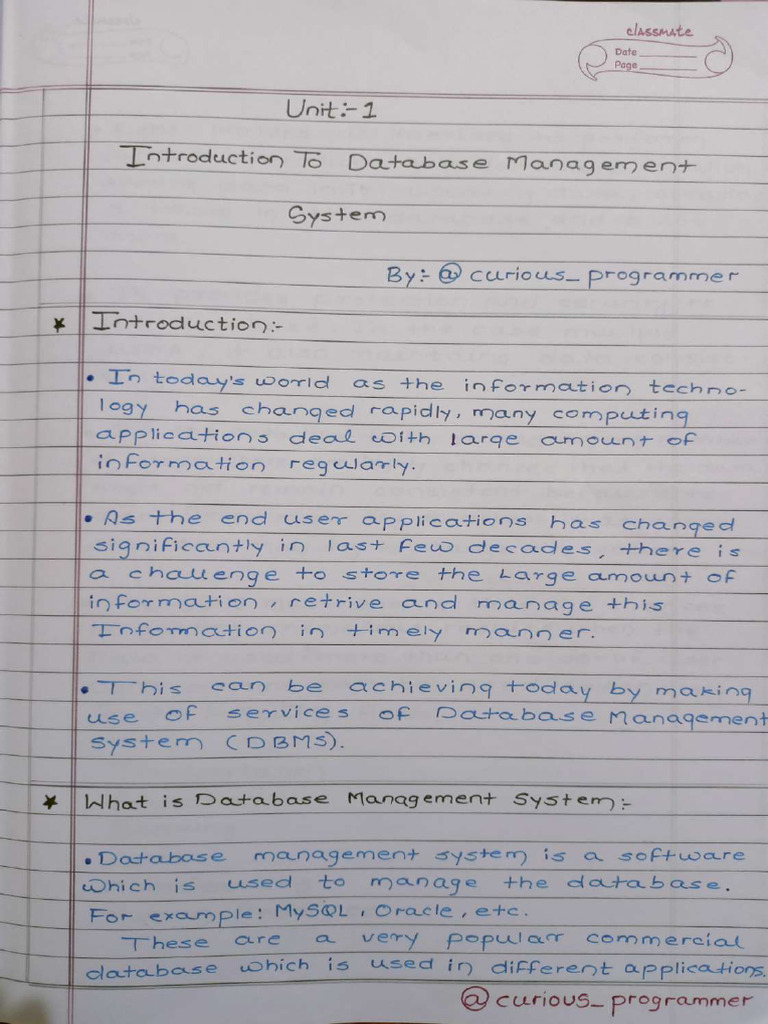 classmate
Date
Page
Unit:-1
Introduction To Database Management
System
By:- @ curious_programmer
★ Introduction:-
• In today's world as the information techno-
logy has changed rapidly, many computing
applications deal with large amount of
information regularly.
• As the end user applications has changed
significantly in last few decades, there is
a challenge to store the Large amount of
information, retrive and manage this
Information in timely manner.
• This can be achieving today by making
use of services of Database Management
System (DBMS).
★ What is Database Management System:-
• Database management system is a software
which is used to manage the database.
For example: MySQL, Oracle, etc.
These are a very popular commercial
database which is used in different applications.
@ curious_programmer